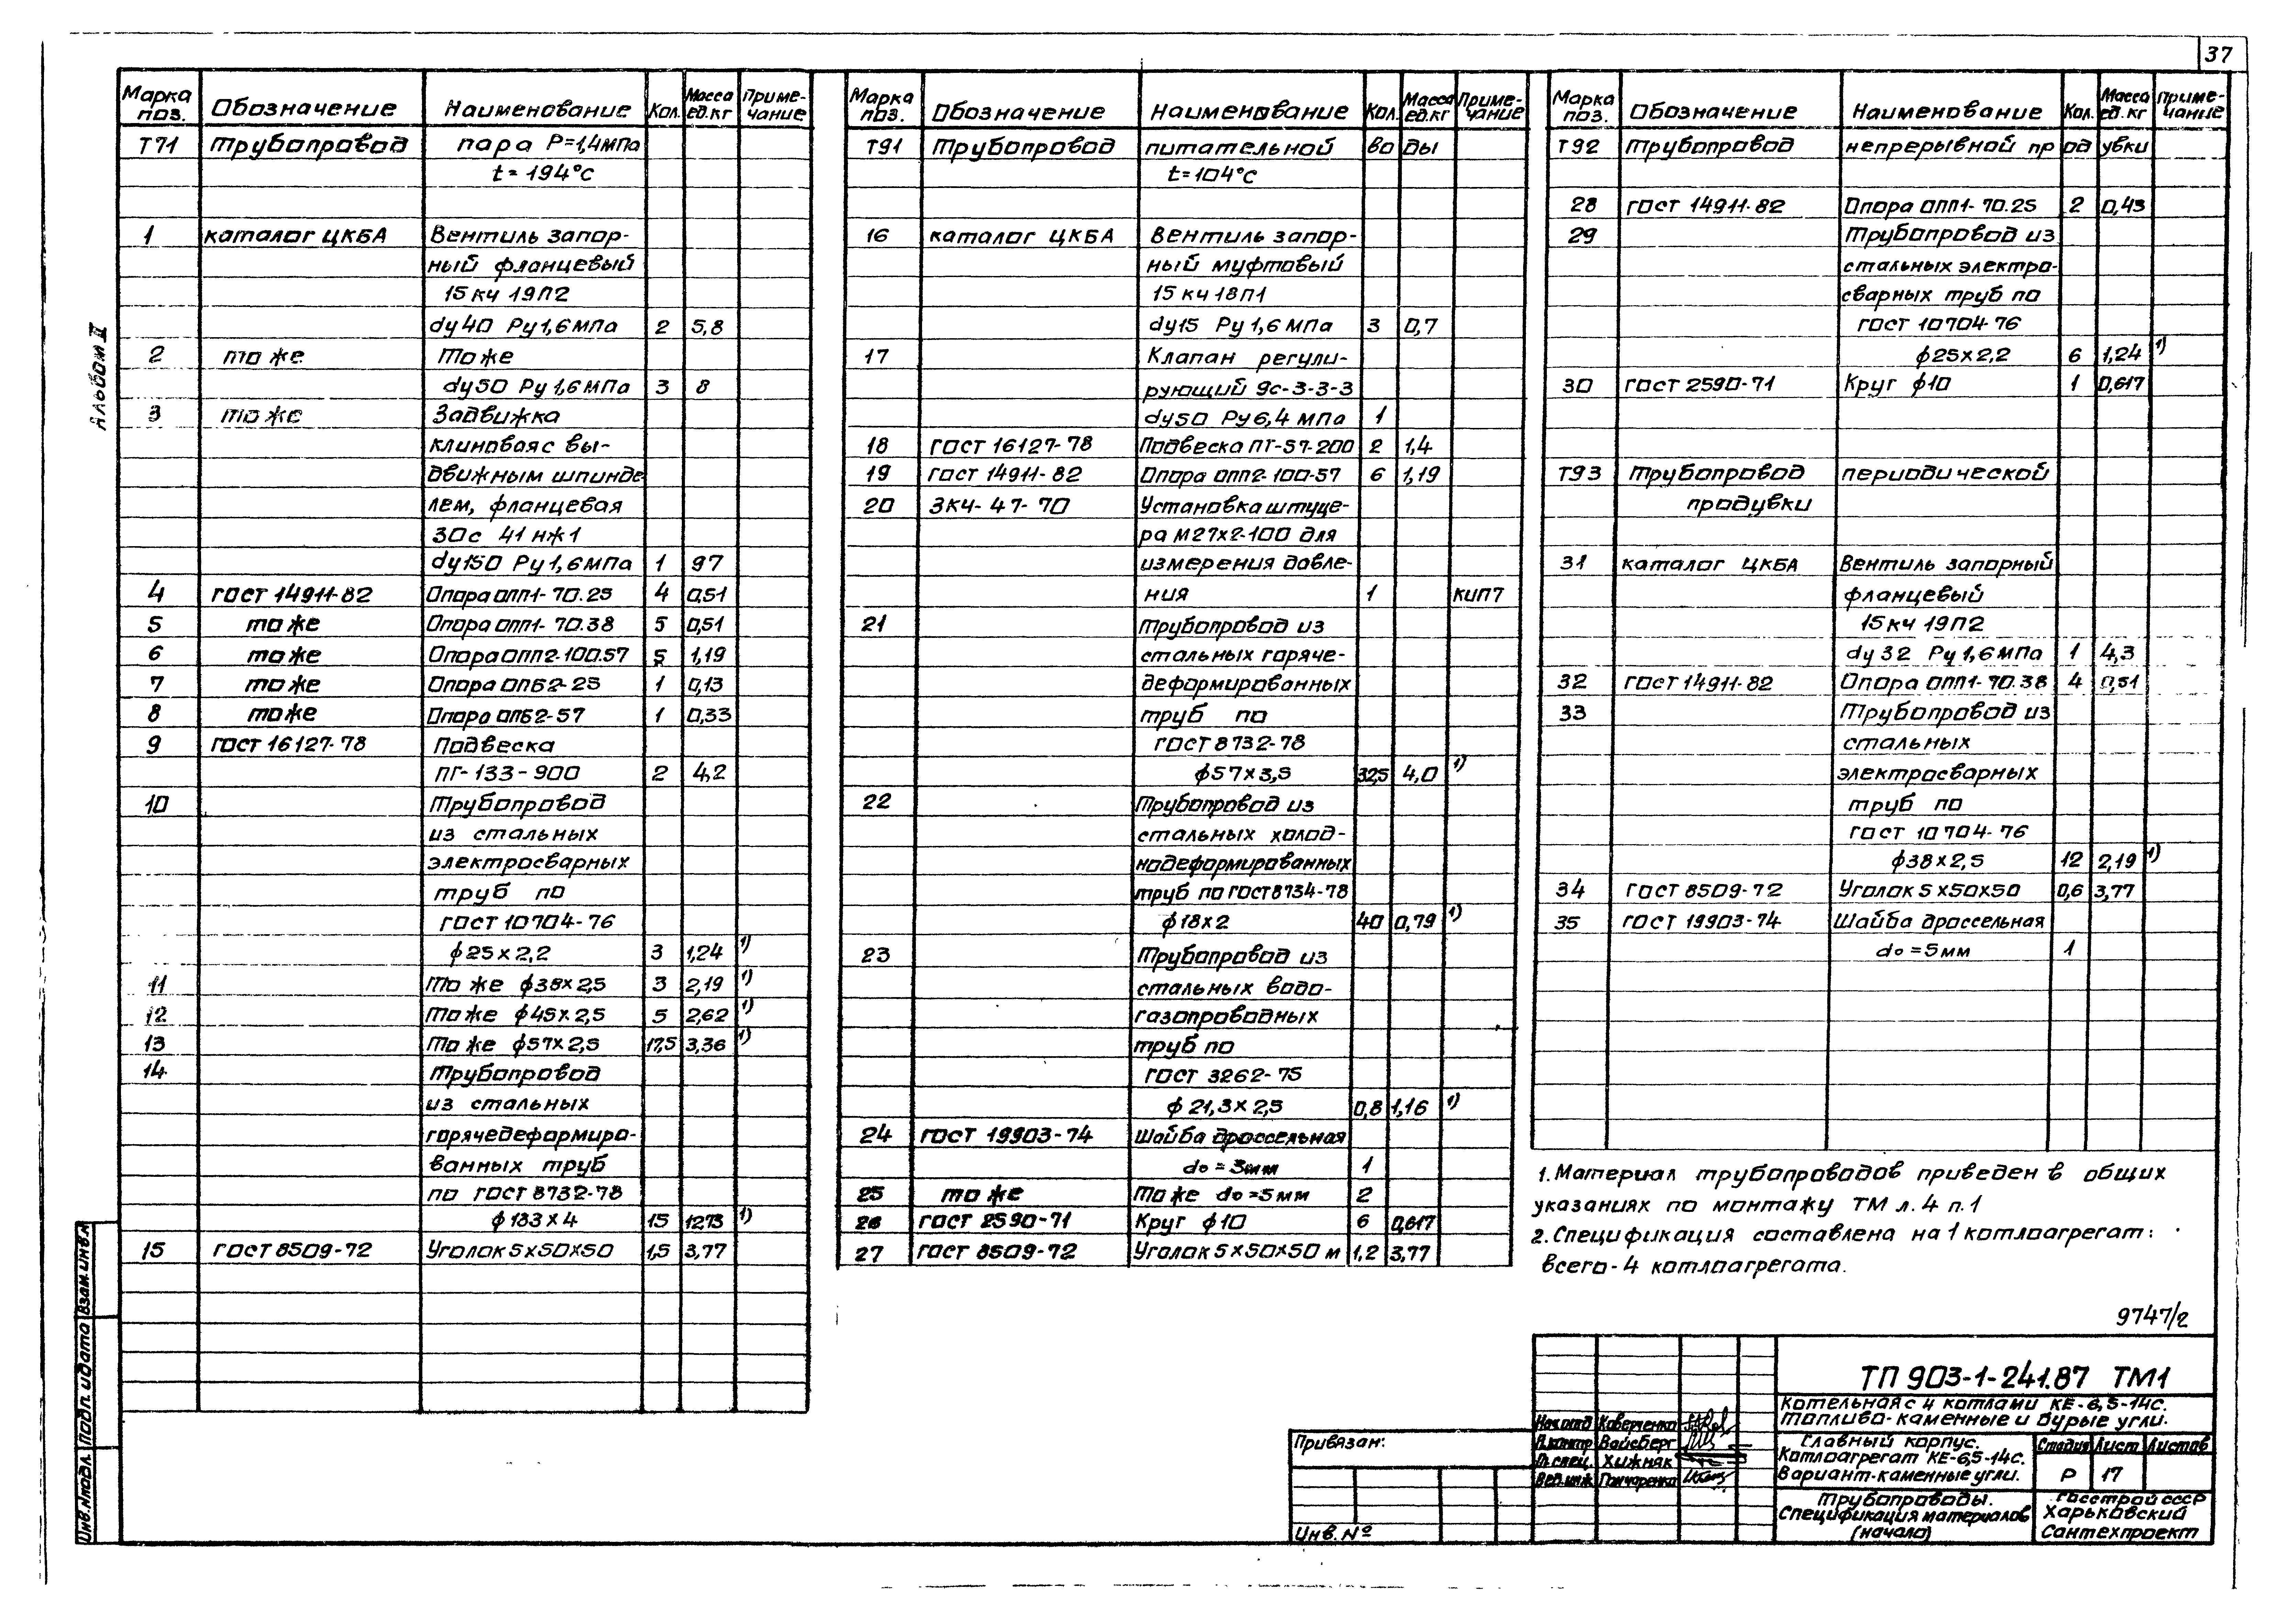 37
Альбом II
Марка поз. Обозначение Наименование Кол. Масса ед.кг Примечание
Т71 Трубопровод пара Р=1,4МПа
t=194°С
1 каталог ЦКБА Вентиль запор-
ный фланцевый
15кч 19П2
dy40 Ру1,6МПа 2 5,8
2 то же То же
dy50 Ру1,6МПа 3 8
3 то же Задвижка
клиновая с вы-
движным шпинде
лем, фланцевая
30с 41 нж1
dy150 Ру1,6МПа 1 97
4 ГОСТ 14911-82 Опора ОПП1-70.25 4 0,51
5 то же Опора ОПП1-70.38 5 0,51
6 то же Опора ОПП2-100.57 5 1,19
7 то же Опора ОПБ2-25 1 0,13
8 то же Опора ОПБ2-57 1 0,33
9 ГОСТ 16127-78 Подвеска
ПГ-133-900 2 4,2
10 Трубопровод
из стальных
электросварных
труб по
ГОСТ 10704-76
ϕ25×2,2 3 1,24 1)
11 То же ϕ38×2,5 3 2,19 1)
12 То же ϕ45×2,5 5 2,62 1)
13 То же ϕ57×2,5 17,5 3,36 1)
14 Трубопровод
из стальных
горячедеформиро-
ванных труб
по ГОСТ 8732-78
ϕ133×4 15 12,73 1)
15 ГОСТ 8509-72 Уголок 5×50×50 1,5 3,77
Марка поз. Обозначение Наименование Кол. Масса ед.кг Примечание
Т91 Трубопровод питательной воды
t=104°С
16 каталог ЦКБА Вентиль запор-
ный муфтовый
15кч18П1
dy15 Ру1,6МПа 3 0,7
17 Клапан регули-
рующий 9с-3-3-3
dy50 Ру6,4МПа 1
18 ГОСТ 16127-78 Подвеска ПГ-57-200 2 1,4
19 ГОСТ 14911-82 Опора ОПП2-100-57 6 1,19
20 ЗКЧ-47-70 Установка штуце-
ра М27×2-100 для
измерения давле-
ния 1 КИП7
21 Трубопровод из
стальных горяче-
деформированных
труб по
ГОСТ 8732-78
ϕ57×3,5 32,5 4,0 1)
22 Трубопровод из
стальных холод-
нодеформированных
труб по ГОСТ 8734-78
ϕ18×2 40 0,79 1)
23 Трубопровод из
стальных водо-
газопроводных
труб по
ГОСТ 3262-75
ϕ21,3×2,5 0,8 1,16 1)
24 ГОСТ 19903-74 Шайба дроссельная
do=3мм 1
25 то же То же do=5мм 2
26 ГОСТ 2590-71 Круг ϕ10 6 0,617
27 ГОСТ 8509-72 Уголок 5×50×50 м 1,2 3,77
Марка поз. Обозначение Наименование Кол. Масса ед.кг Примечание
Т92 Трубопровод непрерывной продувки
28 ГОСТ 14911-82 Опора ОПП1-70.25 2 0,43
29 Трубопровод из
стальных электро-
сварных труб по
ГОСТ 10704-76
ϕ25×2,2 6 1,24 1)
30 ГОСТ 2590-71 Круг ϕ10 1 0,617
Т93 Трубопровод периодической
продувки
31 каталог ЦКБА Вентиль запорный
фланцевый
15кч 19П2
dy32 Ру1,6МПа 1 4,3
32 ГОСТ 14911-82 Опора ОПП1-70.38 4 0,51
33 Трубопровод из
стальных
электросварных
труб по
ГОСТ 10704-76
ϕ38×2,5 12 2,19 1)
34 ГОСТ 8509-72 Уголок 5×50×50 0,6 3,77
35 ГОСТ 19903-74 Шайба дроссельная
do=5мм 1
1. Материал трубопроводов приведен в общих
указаниях по монтажу ТМ л.4 п.1
2. Спецификация составлена на 1 котлоагрегат:
всего-4 котлоагрегата.
9747/2
ТП 903-1-241.87 ТМ1
Котельная с 4 котлами КЕ-6,5-14С.
Топливо-каменные и бурые угли.
Главный корпус.
Котлоагрегат КЕ-6,5-14С.
Вариант-каменные угли.
Стадия Лист Листов
Р 17
Трубопроводы.
Спецификация материалов
(начало)
Госстрой СССР
Харьковский
Сантехпроект
Нач.отд Коверченко
Н.контр Вайсберг
Гл.спец. Хижняк
Вед.инж Гончаренко
Привязан:
Инв.№
Инв.№подл. Подп. и дата Взам.инв.№